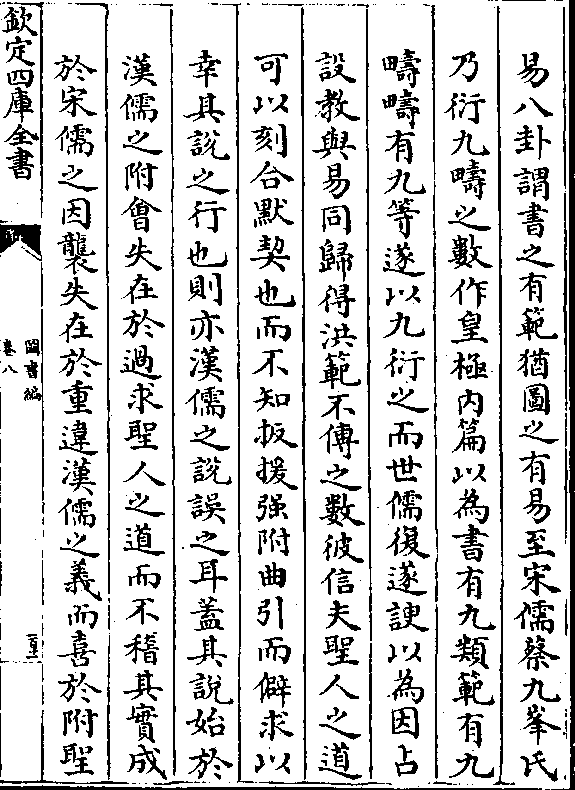 易八卦謂書之有範猶圖之有易至宋儒蔡九峯氏
乃衍九疇之數作皇極内篇以為書有九類範有九
疇疇有九等遂以九衍之而世儒復遂諛以為因占
設教與易同歸得洪範不傳之數彼信夫聖人之道
可以刻合默契也而不知扳援强附曲引而僻求以
幸其說之行也則亦漢儒之說誤之耳蓋其說始於
漢儒之附會失在於過求聖人之道而不稽其實成
於宋儒之因襲失在於重違漢儒之義而喜於附聖
欽定四庫全書
圖書編
卷八